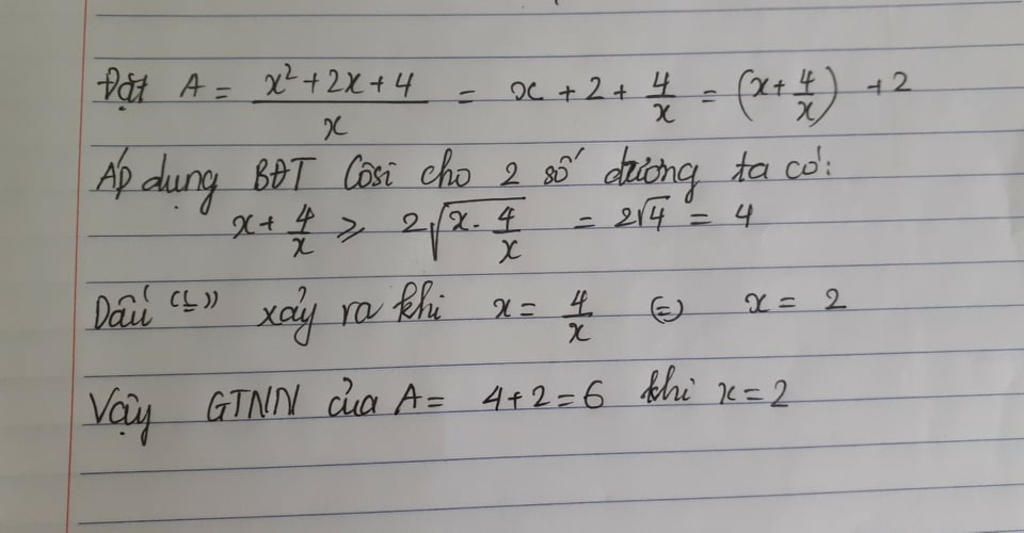 Đặt A = (x² + 2x + 4)/x = x + 2 + 4/x = (x + 4/x) + 2
Áp dụng BĐT Côsi cho 2 số dương ta có:
x + 4/x ⩾ 2√(x · 4/x) = 2√4 = 4
Dấu "=" xảy ra khi x = 4/x (=) x = 2
Vậy GTNN của A = 4 + 2 = 6 khi x = 2